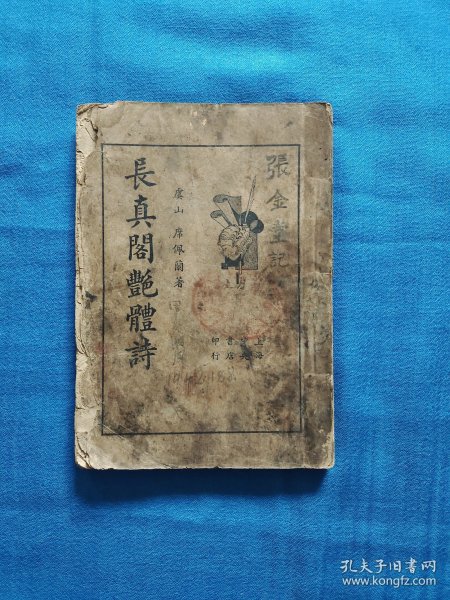 張金堂記
上海
書店
印行
虞山 席佩蘭著
長真閣艷體詩
孔夫子旧书网
www.kongfz.com